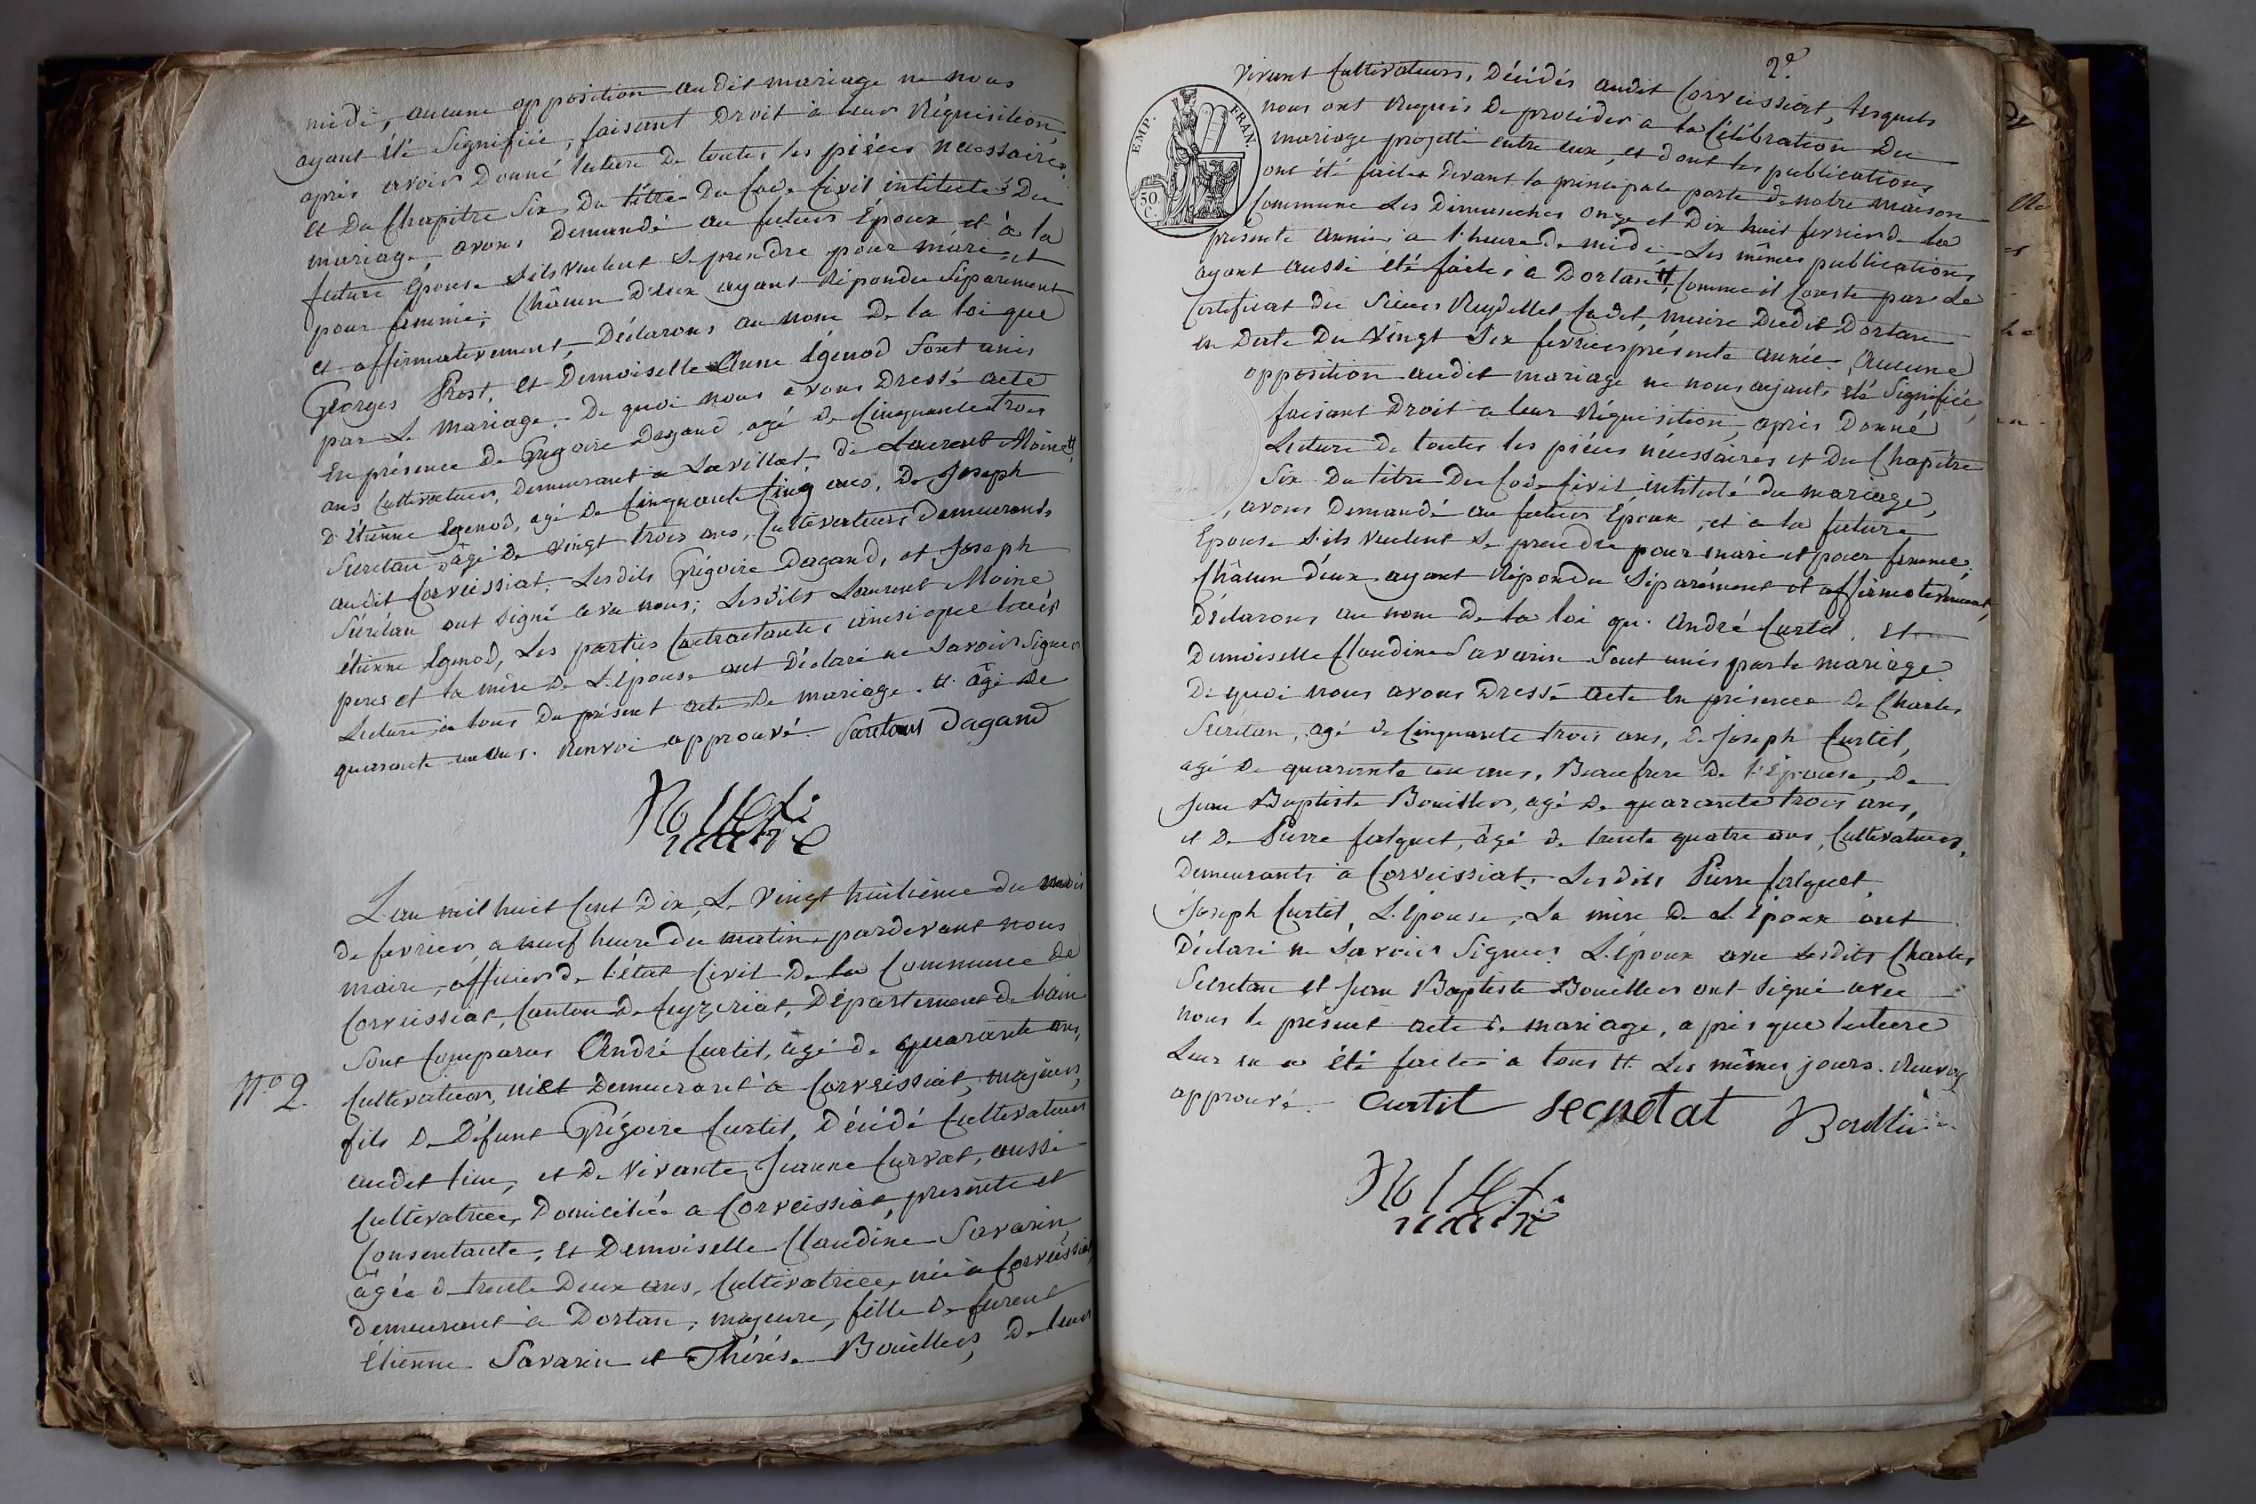 midi, aucune opposition audit mariage ne nous
ayant été Signifiée, faisant Droit à leur Réquisition
après avoir Donné lecture De toutes les pièces nécessaires
et Du Chapitre Six Du titre Du Code Civil intitulé Du
mariage, avons Demandé au futur Époux et à la
future Epouse S'ils veulent se prendre pour mari et
pour femme; Châcun D'eux ayant Répondu Séparément
et affirmativement, Déclarons au nom De la loi que
Georges Prost, et Demoiselle Anne Egenod Sont unis
par le Mariage. De quoi nous avons Dressé acte
En présence de Grégoire Dagand agé de Cinquante trois
ans Cultivateur, Demeurant a Lavillat, de Laurent Moine #
D'étienne Egenod, agé De Cinquante Cinq ans, De Joseph
Surétan agé De vingt trois ans, Cultivateurs Demeurants
audit Corveissiat, Lesdits Grégoire Dagand, et Joseph
Surétan ont signé avec nous; Lesdits Laurent Moine
étienne Egenod, Les parties Contractantes ainsi que leurs
peres et la mère De L'épouse ont Déclaré ne Savoir Signer
Lecture à tous Du présent acte De mariage. # âgé de
quarante un ans. Renvoi approuvé. Suretans Dagand
Nollet
maire
L'an mil huit Cent Dix, Le Vingt huitième du mois
de fevrier, a neuf heure Du matin, pardevant nous
maire, officier De l'état Civil De la Commune de
Corveissiat, Canton De Ceyzeriat, Département De l'ain
Sont Comparus André Curtil, âgé de quarante ans,
N.º 2. Cultivateur, né et Demeurant à Corveissiat, majeur,
fils De Défunt Grégoire Curtil, Décédé Cultivateur
audit lieu, et De Vivante Jeanne Curvat, aussi
Cultivatrice, Domiciliée a Corveissiat, présente et
Consentante; et Demoiselle Claudine Savarin
âgée de trente Deux ans, Cultivatrice, née à Corveissiat
Demeurant à Dortan, majeure, fille De furent
étienne Savarin et Thérèse Bouiller, De leur
2.e
Vivant Cultivateurs, Décédés audit Corveissiat, lesquels
nous ont Requis De procéder a la Célébration Du
mariage projetté entre eux, et dont les publications
ont été faites devant la principale porte De notre maison
Commune Les Dimanches onze et Dix huit fevrier de la
présente année, a l'heure de midi. Les mêmes publications
ayant aussi été faites à Dortan #, Comme il Conste par Le
Certificat du Sieur Ruydellet Cadet, maire Dudit Dortan
en Date Du Vingt Six fevrier présente année. Aucune
opposition audit mariage ne nous ayant été Signifiée,
faisant Droit a leur Réquisition, après Donné
Lecture De toutes les pièces nécessaires et Du Chapitre
Six Du titre Du Code Civil intitulé du mariage,
avons Demandé au futur Epoux, et a la future
Epouse S'ils veulent se prendre pour mari et pour femme;
Châcun d'eux ayant Répondu Séparément et affirmativement,
Déclarons au nom De la loi que André Curtil, et
Demoiselle Claudine Savarin Sont unis par le mariage.
De quoi nous avons Dressé acte En présence De Charles
Surétan, agé de Cinquante trois ans, De Joseph Curtil,
agé De quarante un ans, Beaufrere De l'Épouse, De
Jean Baptiste Bouiller, agé De quarante trois ans,
et De Pierre falquet, âgé de trente quatre ans, Cultivateurs,
Demeurants a Corveissiat. Lesdits Pierre falquet,
Joseph Curtil, L'épouse, La mère De L'Époux ont
Déclaré ne Savoir Signer. L'époux avec Lesdits Charles
Surétan et Jean Baptiste Bouiller ont Signé avec
nous le présent acte De mariage, après que lecture
Leur en a été faite à tous # Les mêmes jours. Renvoi
approuvé. Curtil secretat
Nollet
maire
EMP. FRAN.
50. C.